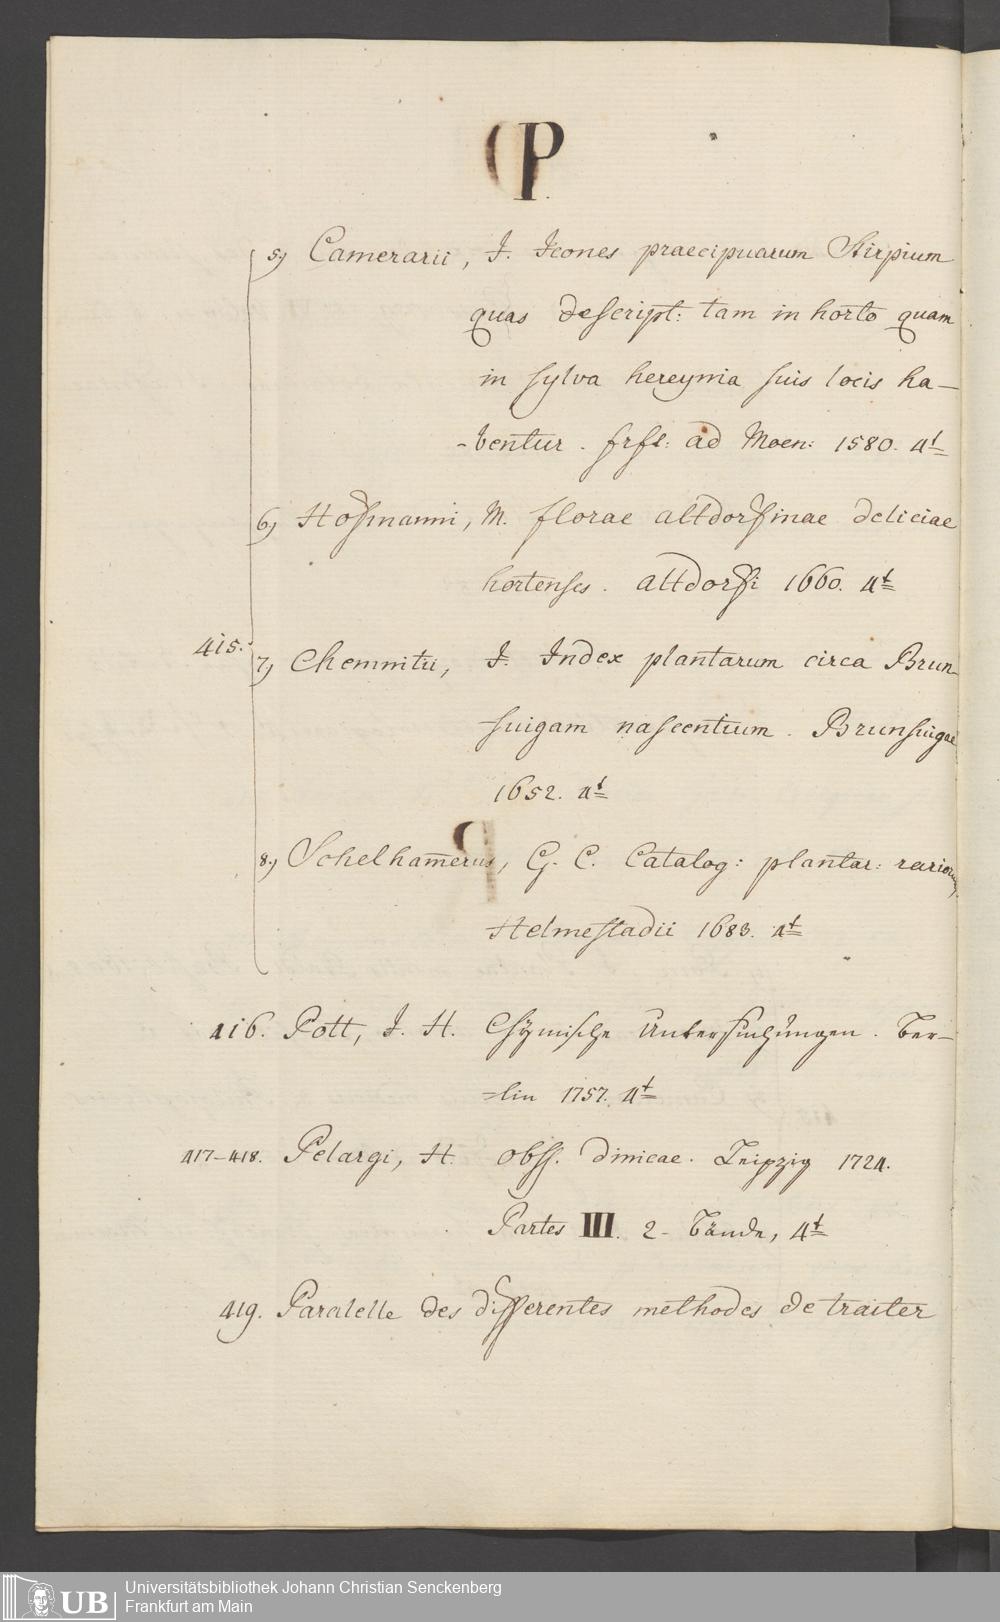 P.
5) Camerarii, J. Icones praecipuarum Stirpium
quas descript: tam in horto quam
in sylva hercynia suis locis ha-
-bentur. frft: ad Moen: 1580. 4t
6) Hofmanni, M. florae altdorfinae deliciae
hortenses. altdorfi 1660. 4t
415. 7) Chemnitii, J. Index plantarum circa Brun-
suigam nascentium. Brunsuigae
1652. 4t
8) Schelham̄erus, G. C. Catalog: plantar: rariorum,
Helmestadii 1683. 4t
416. Pott, J. H. Chymische Untersuchungen. Ber-
-lin 1757. 4t
417-418. Pelargi, H. obss. clinicae. Leipzig 1724.
Partes III. 2 - Bände, 4t
419. Paralelle des differentes methodes de traiter
UB Universitätsbibliothek Johann Christian Senckenberg
Frankfurt am Main